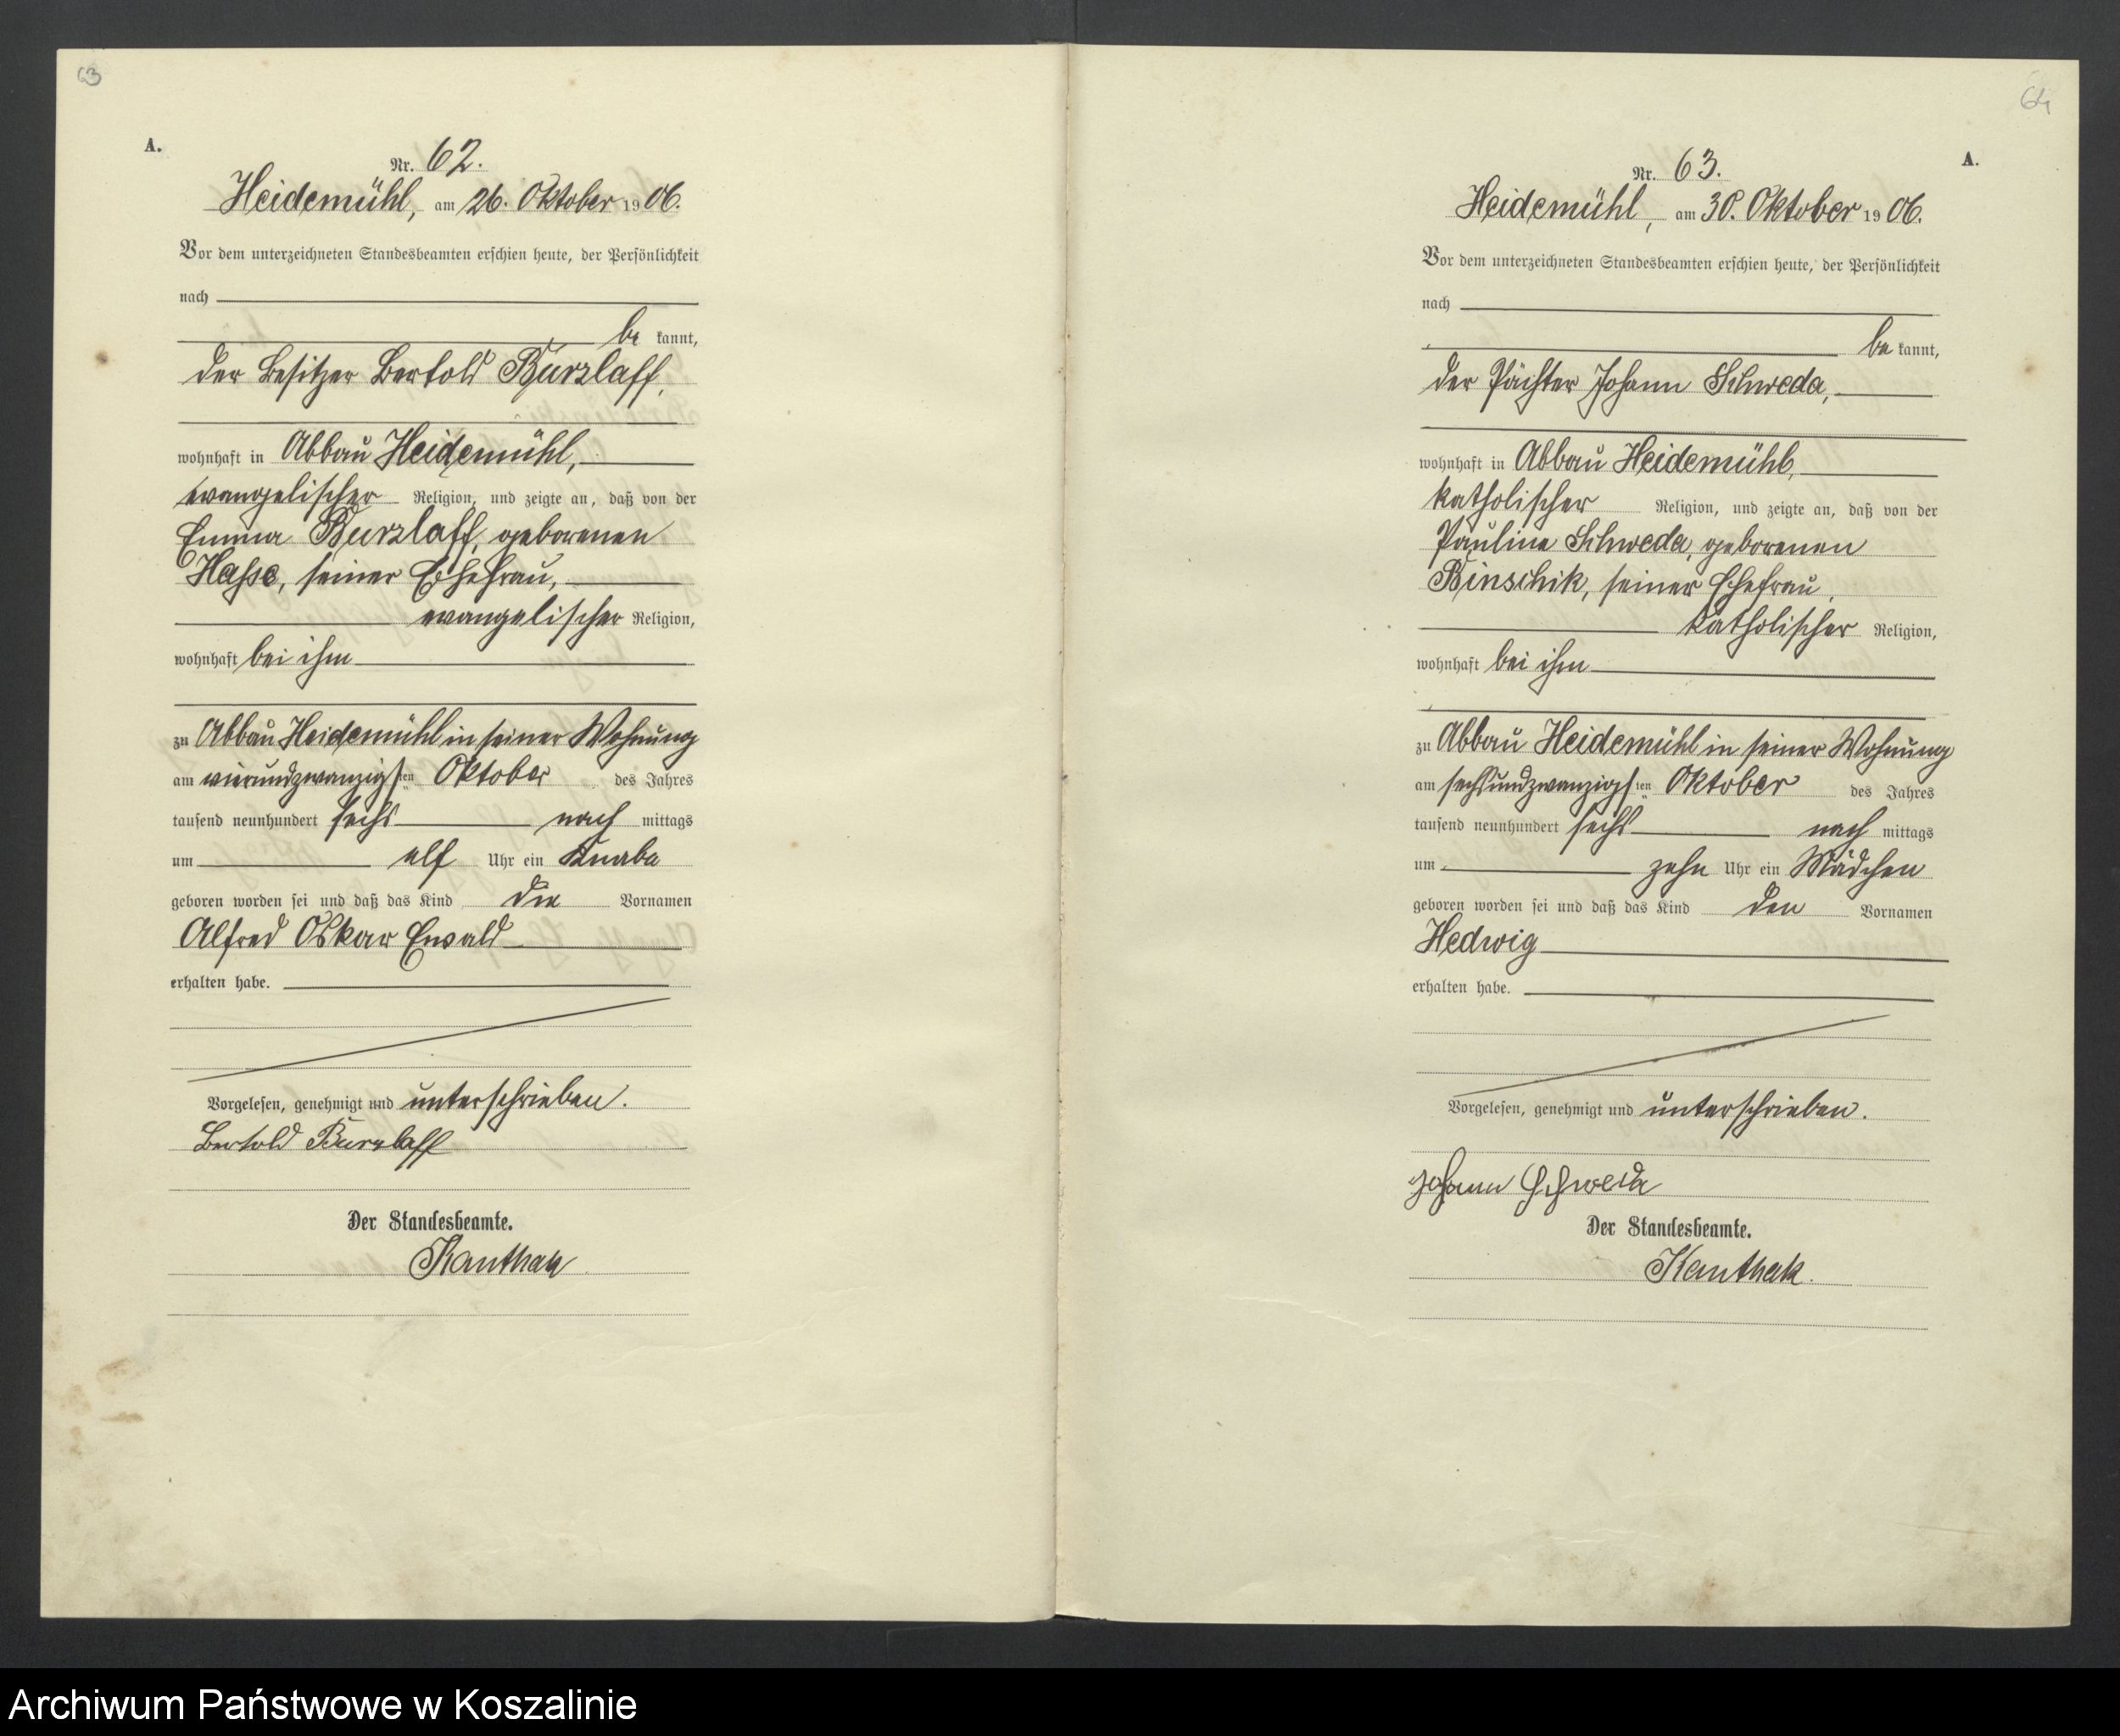 63
A.
Nr. 62.
Heidemühl, am 26. Oktober 1906.
Vor dem unterzeichneten Standesbeamten erschien heute, der Persönlichkeit
nach
be kannt,
der Besitzer Bertold Burzlaff,
wohnhaft in Abbau Heidemühl,
evangelischer Religion, und zeigte an, daß von der
Emma Burzlaff, geborenen
Hasse, seiner Ehefrau,
evangelischer Religion,
wohnhaft bei ihm
zu Abbau Heidemühl in seiner Wohnung
am vierundzwanzigsten Oktober des Jahres
tausend neunhundert sechs nach mittags
um elf Uhr ein Knabe
geboren worden sei und daß das Kind die Vornamen
Alfred Oskar Ewald
erhalten habe.
Vorgelesen, genehmigt und unterschrieben.
Bertold Burzlaff
Der Standesbeamte.
Kanthak
64
A.
Nr. 63.
Heidemühl, am 30. Oktober 1906.
Vor dem unterzeichneten Standesbeamten erschien heute, der Persönlichkeit
nach
be kannt,
der Pächter Johann Schweda,
wohnhaft in Abbau Heidemühl,
katholischer Religion, und zeigte an, daß von der
Pauline Schweda, geborenen
Binschik, seiner Ehefrau,
katholischer Religion,
wohnhaft bei ihm
zu Abbau Heidemühl in seiner Wohnung
am sechsundzwanzigsten Oktober des Jahres
tausend neunhundert sechs nach mittags
um zehn Uhr ein Mädchen
geboren worden sei und daß das Kind den Vornamen
Hedwig
erhalten habe.
Vorgelesen, genehmigt und unterschrieben.
Johann Schweda
Der Standesbeamte.
Kanthak.
Archiwum Państwowe w Koszalinie